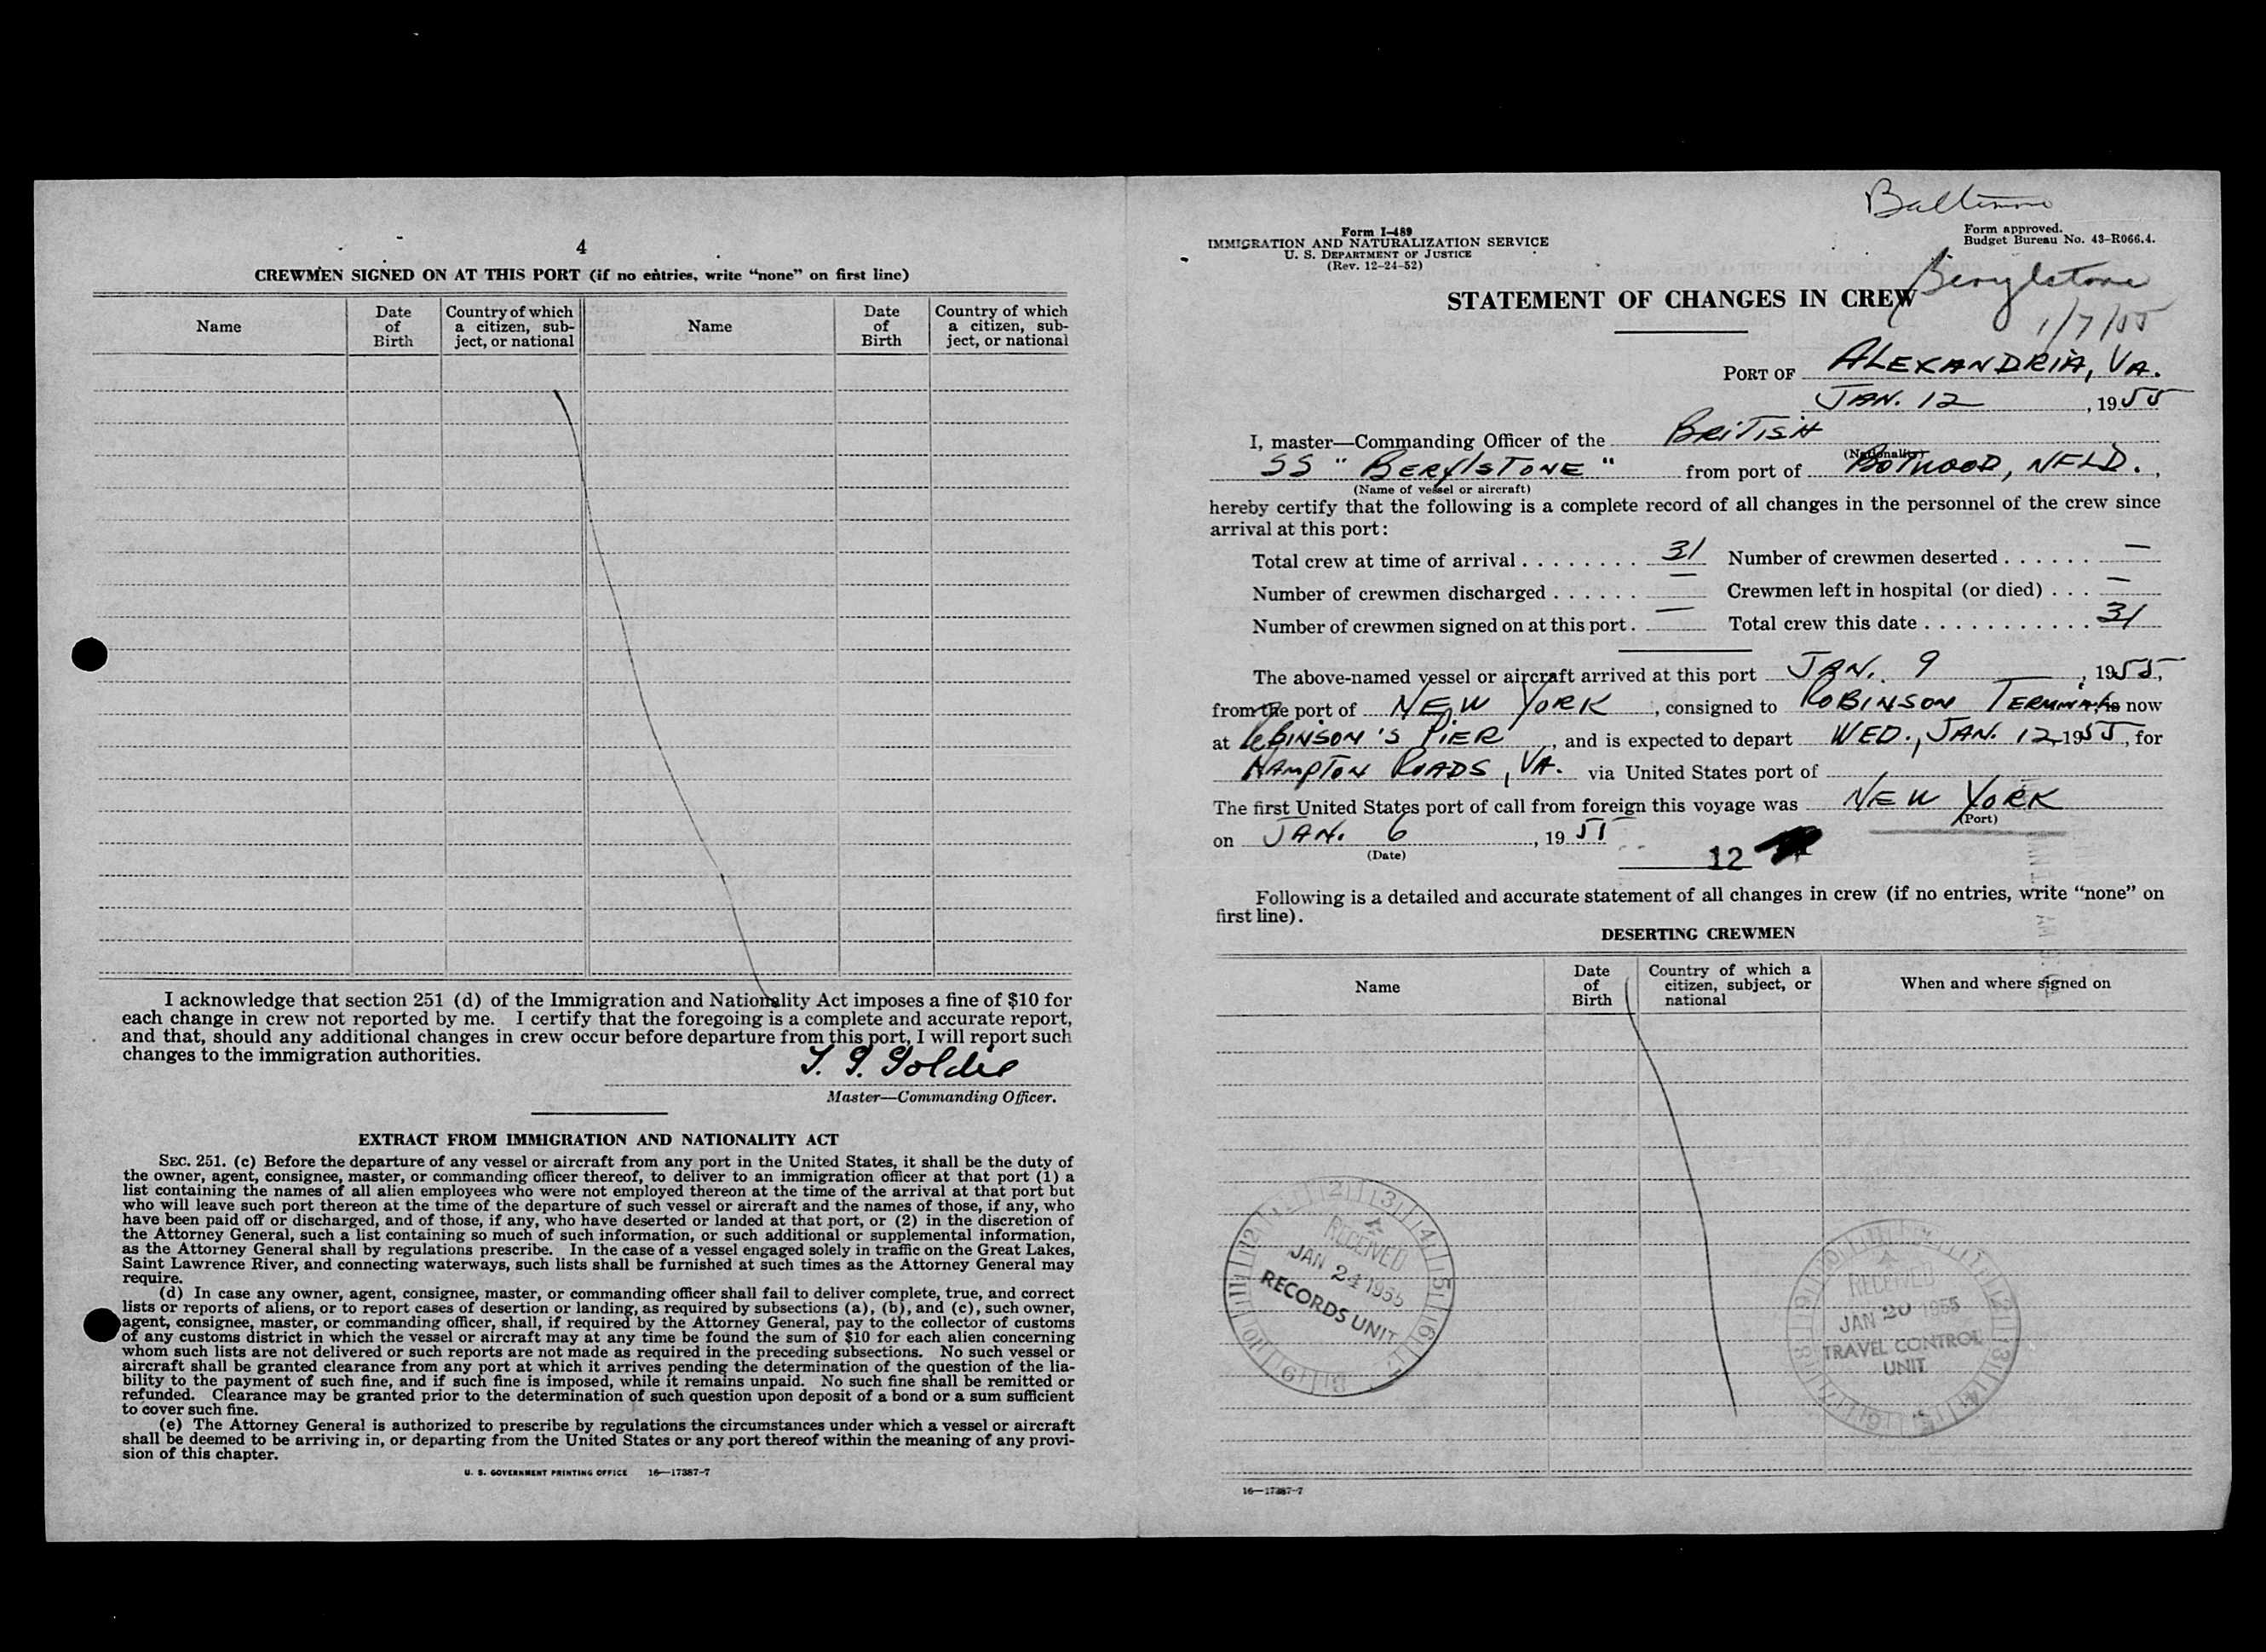 4
CREWMEN SIGNED ON AT THIS PORT (if no entries, write “none” on first line)
Name
Date of Birth
Country of which a citizen, sub-ject, or national
Name
Date of Birth
Country of which a citizen, sub-ject, or national
I acknowledge that section 251 (d) of the Immigration and Nationality Act imposes a fine of $10 for
each change in crew not reported by me. I certify that the foregoing is a complete and accurate report,
and that, should any additional changes in crew occur before departure from this port, I will report such
changes to the immigration authorities.
Goldie
Master—Commanding Officer.
EXTRACT FROM IMMIGRATION AND NATIONALITY ACT
SEC. 251. (c) Before the departure of any vessel or aircraft from any port in the United States, it shall be the duty of
the owner, agent, consignee, master, or commanding officer thereof, to deliver to an immigration officer at that port (1) a
list containing the names of all alien employees who were not employed thereon at the time of the arrival at that port but
who will leave such port thereon at the time of the departure of such vessel or aircraft and the names of those, if any, who
have been paid off or discharged, and of those, if any, who have deserted or landed at that port, or (2) in the discretion of
the Attorney General, such a list containing so much of such information, or such additional or supplemental information,
as the Attorney General shall by regulations prescribe. In the case of a vessel engaged solely in traffic on the Great Lakes,
Saint Lawrence River, and connecting waterways, such lists shall be furnished at such times as the Attorney General may
require.
(d) In case any owner, agent, consignee, master, or commanding officer shall fail to deliver complete, true, and correct
lists or reports of aliens, or to report cases of desertion or landing, as required by subsections (a), (b), and (c), such owner,
agent, consignee, master, or commanding officer, shall, if required by the Attorney General, pay to the collector of customs
of any customs district in which the vessel or aircraft may at any time be found the sum of $10 for each alien concerning
whom such lists are not delivered or such reports are not made as required in the preceding subsections. No such vessel or
aircraft shall be granted clearance from any port at which it arrives pending the determination of the question of the lia-
bility to the payment of such fine, and if such fine is imposed, while it remains unpaid. No such fine shall be remitted or
refunded. Clearance may be granted prior to the determination of such question upon deposit of a bond or a sum sufficient
to cover such fine.
(e) The Attorney General is authorized to prescribe by regulations the circumstances under which a vessel or aircraft
shall be deemed to be arriving in, or departing from the United States or any port thereof within the meaning of any provi-
sion of this chapter.
U. S. GOVERNMENT PRINTING OFFICE 16—17387-7
Baltimore
Form I-489
IMMIGRATION AND NATURALIZATION SERVICE
U. S. DEPARTMENT OF JUSTICE
(Rev. 12-24-52)
Form approved.
Budget Bureau No. 43-R066.4.
Berylstone
1/7/55
STATEMENT OF CHANGES IN CREW
PORT OF ALEXANDRIA, VA.
JAN. 12, 1955
I, master—Commanding Officer of the BRITISH
(Nationality)
SS "BERYLSTONE" from port of BOTWOOD, NFLD.,
(Name of vessel or aircraft)
hereby certify that the following is a complete record of all changes in the personnel of the crew since
arrival at this port:
Total crew at time of arrival . . . . . . . . 31 Number of crewmen deserted . . . . . . —
Number of crewmen discharged . . . . . . — Crewmen left in hospital (or died) . . . —
Number of crewmen signed on at this port . — Total crew this date . . . . . . . . . . . 31
The above-named vessel or aircraft arrived at this port JAN. 9, 1955,
from the port of NEW YORK, consigned to ROBINSON TERMINAL now
at ROBINSON'S PIER, and is expected to depart WED., JAN. 12, 1955, for
HAMPTON ROADS, VA. via United States port of
The first United States port of call from foreign this voyage was NEW YORK
(Port)
on JAN. 6, 1955
(Date)
12
Following is a detailed and accurate statement of all changes in crew (if no entries, write “none” on
first line).
DESERTING CREWMEN
Name
Date of Birth
Country of which a citizen, subject, or national
When and where signed on
RECEIVED
JAN 24 1955
RECORDS UNIT
RECEIVED
JAN 20 1955
TRAVEL CONTROL
UNIT
16—17387-7